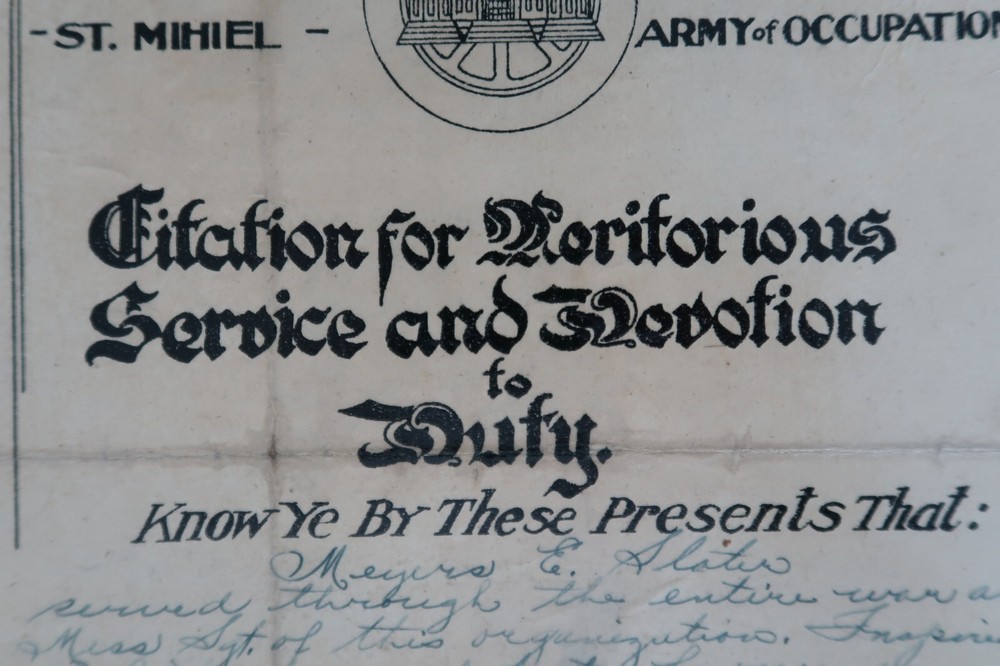 -ST. MIHIEL -
ARMY of OCCUPATION
Citation for Meritorious
Service and Devotion
to
Duty.
Know Ye By These Presents That:
Meyers E. Slater
served through the entire war a
Mess Sgt. of this organization. Inspiri